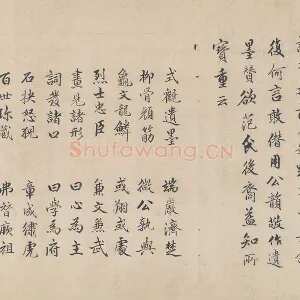 復何言敢僭用公韻敬作遺
墨贊欲范氏後裔益知所
寶重云
式觀遺墨 端嚴濟楚
柳骨顏筋 微公孰與
龜文龍鱗 或翔或處
烈士忠臣 兼文兼武
畫見諸形 曰心為主
詞發諸口 曰學為府
石抉怒猊 章成繡虎
百世珍藏 弗替厥祖
Shufawang.CN